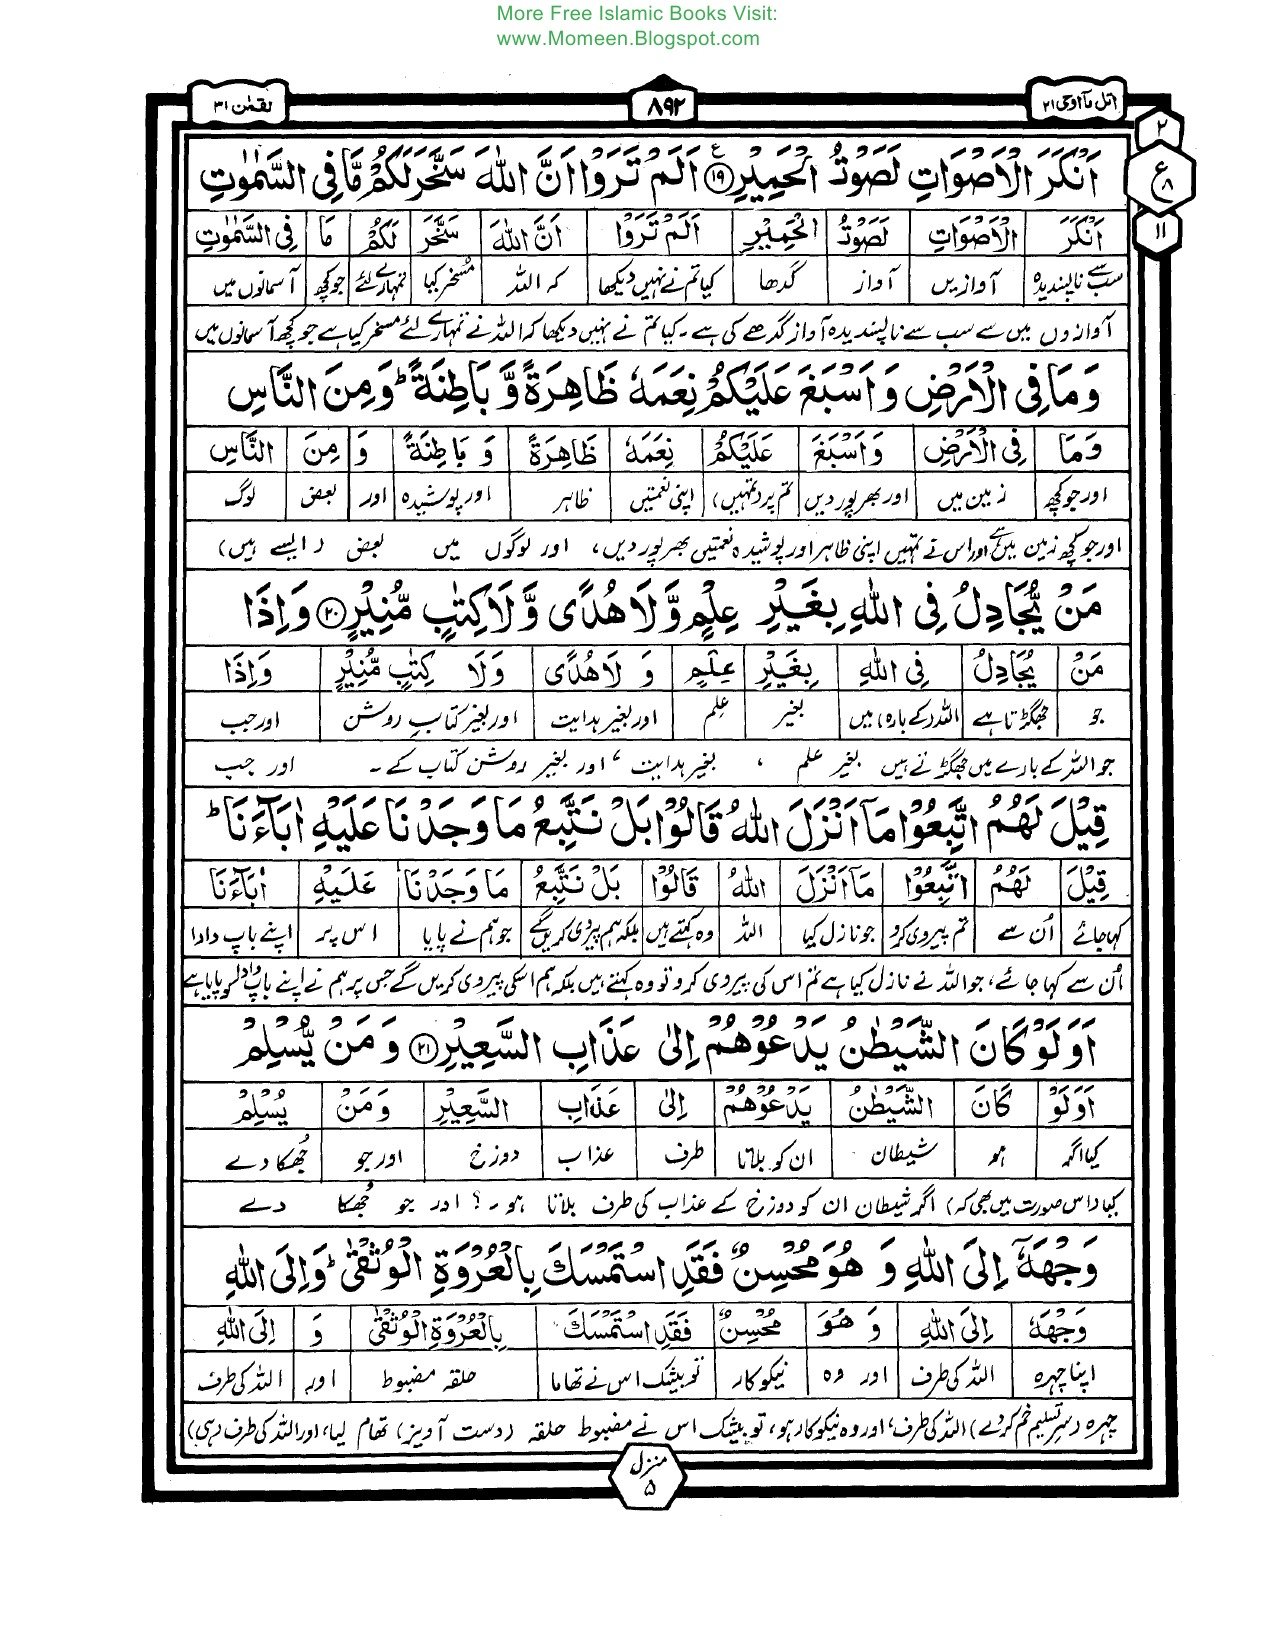 More Free Islamic Books Visit:
www.Momeen.Blogspot.com
اتل مآ اوحی ۲۱
۸۹۲
لقمٰن ۳۱
۲
ع
۸
۱۱
اَنْكَرَ الْاَصْوَاتِ لَصَوْتُ الْحَمِيْرِ ۱۹ اَلَمْ تَرَوْا اَنَّ اللّٰهَ سَخَّرَ لَكُمْ مَّا فِي السَّمٰوٰتِ
اَنْكَرَ الْاَصْوَاتِ لَصَوْتُ الْحَمِيْرِ اَلَمْ تَرَوْا اَنَّ اللّٰهَ سَخَّرَ لَكُمْ مَا فِي السَّمٰوٰتِ
سب سے ناپسندیدہ آوازیں آواز گدھا کیا تم نے نہیں دیکھا کہ اللہ مسخر کیا تمہارے لئے جو کچھ آسمانوں میں
آوازوں میں سے سب سے ناپسندیدہ آواز گدھے کی ہے۔ کیا تم نے نہیں دیکھا کہ اللہ نے تمہارے لئے مسخر کیا ہے جو کچھ آسمانوں میں
وَمَا فِي الْاَرْضِ وَاَسْبَغَ عَلَيْكُمْ نِعَمَهٗ ظَاهِرَةً وَّ بَاطِنَةً ؕ وَمِنَ النَّاسِ
وَمَا فِي الْاَرْضِ وَاَسْبَغَ عَلَيْكُمْ نِعَمَهٗ ظَاهِرَةً وَ بَاطِنَةً وَ مِنَ النَّاسِ
اور جو کچھ زمین میں اور بھرپور دیں تم پر (تمہیں) اپنی نعمتیں ظاہر اور پوشیدہ اور بعض لوگ
اور جو کچھ زمین میں ہے اور اس نے تمہیں اپنی ظاہر اور پوشیدہ نعمتیں بھرپور دیں، اور لوگوں میں بعض (ایسے ہیں)
مَنْ يُّجَادِلُ فِي اللّٰهِ بِغَيْرِ عِلْمٍ وَّلَا هُدًى وَّلَا كِتٰبٍ مُّنِيْرٍ ۲۰ وَاِذَا
مَنْ يُجَادِلُ فِي اللّٰهِ بِغَيْرِ عِلْمٍ وَ لَا هُدًى وَلَا كِتٰبٍ مُّنِيْرٍ وَاِذَا
جو جھگڑتا ہے اللہ (کے بارہ) میں بغیر علم اور بغیر ہدایت اور بغیر کتاب روشن اور جب
جو اللہ کے بارے میں جھگڑتے ہیں بغیر علم ، بغیر ہدایت ، اور بغیر روشن کتاب کے ۔ اور جب
قِيْلَ لَهُمُ اتَّبِعُوْا مَآ اَنْزَلَ اللّٰهُ قَالُوْا بَلْ نَتَّبِعُ مَا وَجَدْنَا عَلَيْهِ اٰبَآءَنَا ؕ
قِيْلَ لَهُمُ اتَّبِعُوْا مَآ اَنْزَلَ اللّٰهُ قَالُوْا بَلْ نَتَّبِعُ مَا وَجَدْنَا عَلَيْهِ اٰبَآءَنَا
کہا جائے اُن سے تم پیروی کرو جو نازل کیا اللہ وہ کہتے ہیں بلکہ ہم پیروی کریں گے جو ہم نے پایا اس پر اپنے باپ دادا
اُن سے کہا جائے، جو اللہ نے نازل کیا ہے تم اس کی پیروی کرو تو وہ کہتے ہیں بلکہ ہم اسکی پیروی کریں گے جس پر ہم نے اپنے باپ دادا کو پایا ہے
اَوَلَوْ كَانَ الشَّيْطٰنُ يَدْعُوْهُمْ اِلٰى عَذَابِ السَّعِيْرِ ۲۱ وَمَنْ يُّسْلِمْ
اَوَلَوْ كَانَ الشَّيْطٰنُ يَدْعُوْهُمْ اِلٰى عَذَابِ السَّعِيْرِ وَمَنْ يُسْلِمْ
کیا اگر ہو شیطان ان کو بلاتا طرف عذاب دوزخ اور جو جُھکا دے
کیا (اس صورت میں بھی کہ) اگر شیطان ان کو دوزخ کے عذاب کی طرف بلاتا ہو۔؟ اور جو جُھکا دے
وَجْهَهٗٓ اِلَى اللّٰهِ وَ هُوَ مُحْسِنٌ فَقَدِ اسْتَمْسَكَ بِالْعُرْوَةِ الْوُثْقٰى ؕ وَاِلَى اللّٰهِ
وَجْهَهٗ اِلَى اللّٰهِ وَ هُوَ مُحْسِنٌ فَقَدِ اسْتَمْسَكَ بِالْعُرْوَةِ الْوُثْقٰى وَ اِلَى اللّٰهِ
اپنا چہرہ اللہ کی طرف اور وہ نیکوکار تو بیشک اس نے تھاما حلقہ مضبوط اور اللہ کی طرف
چہرہ (سرِ تسلیم خم کر دے) اللہ کی طرف، اور وہ نیکوکار ہو، تو بیشک اس نے مضبوط حلقہ (دست آویز) تھام لیا، اور اللہ کی طرف (ہی)
منزل
۵